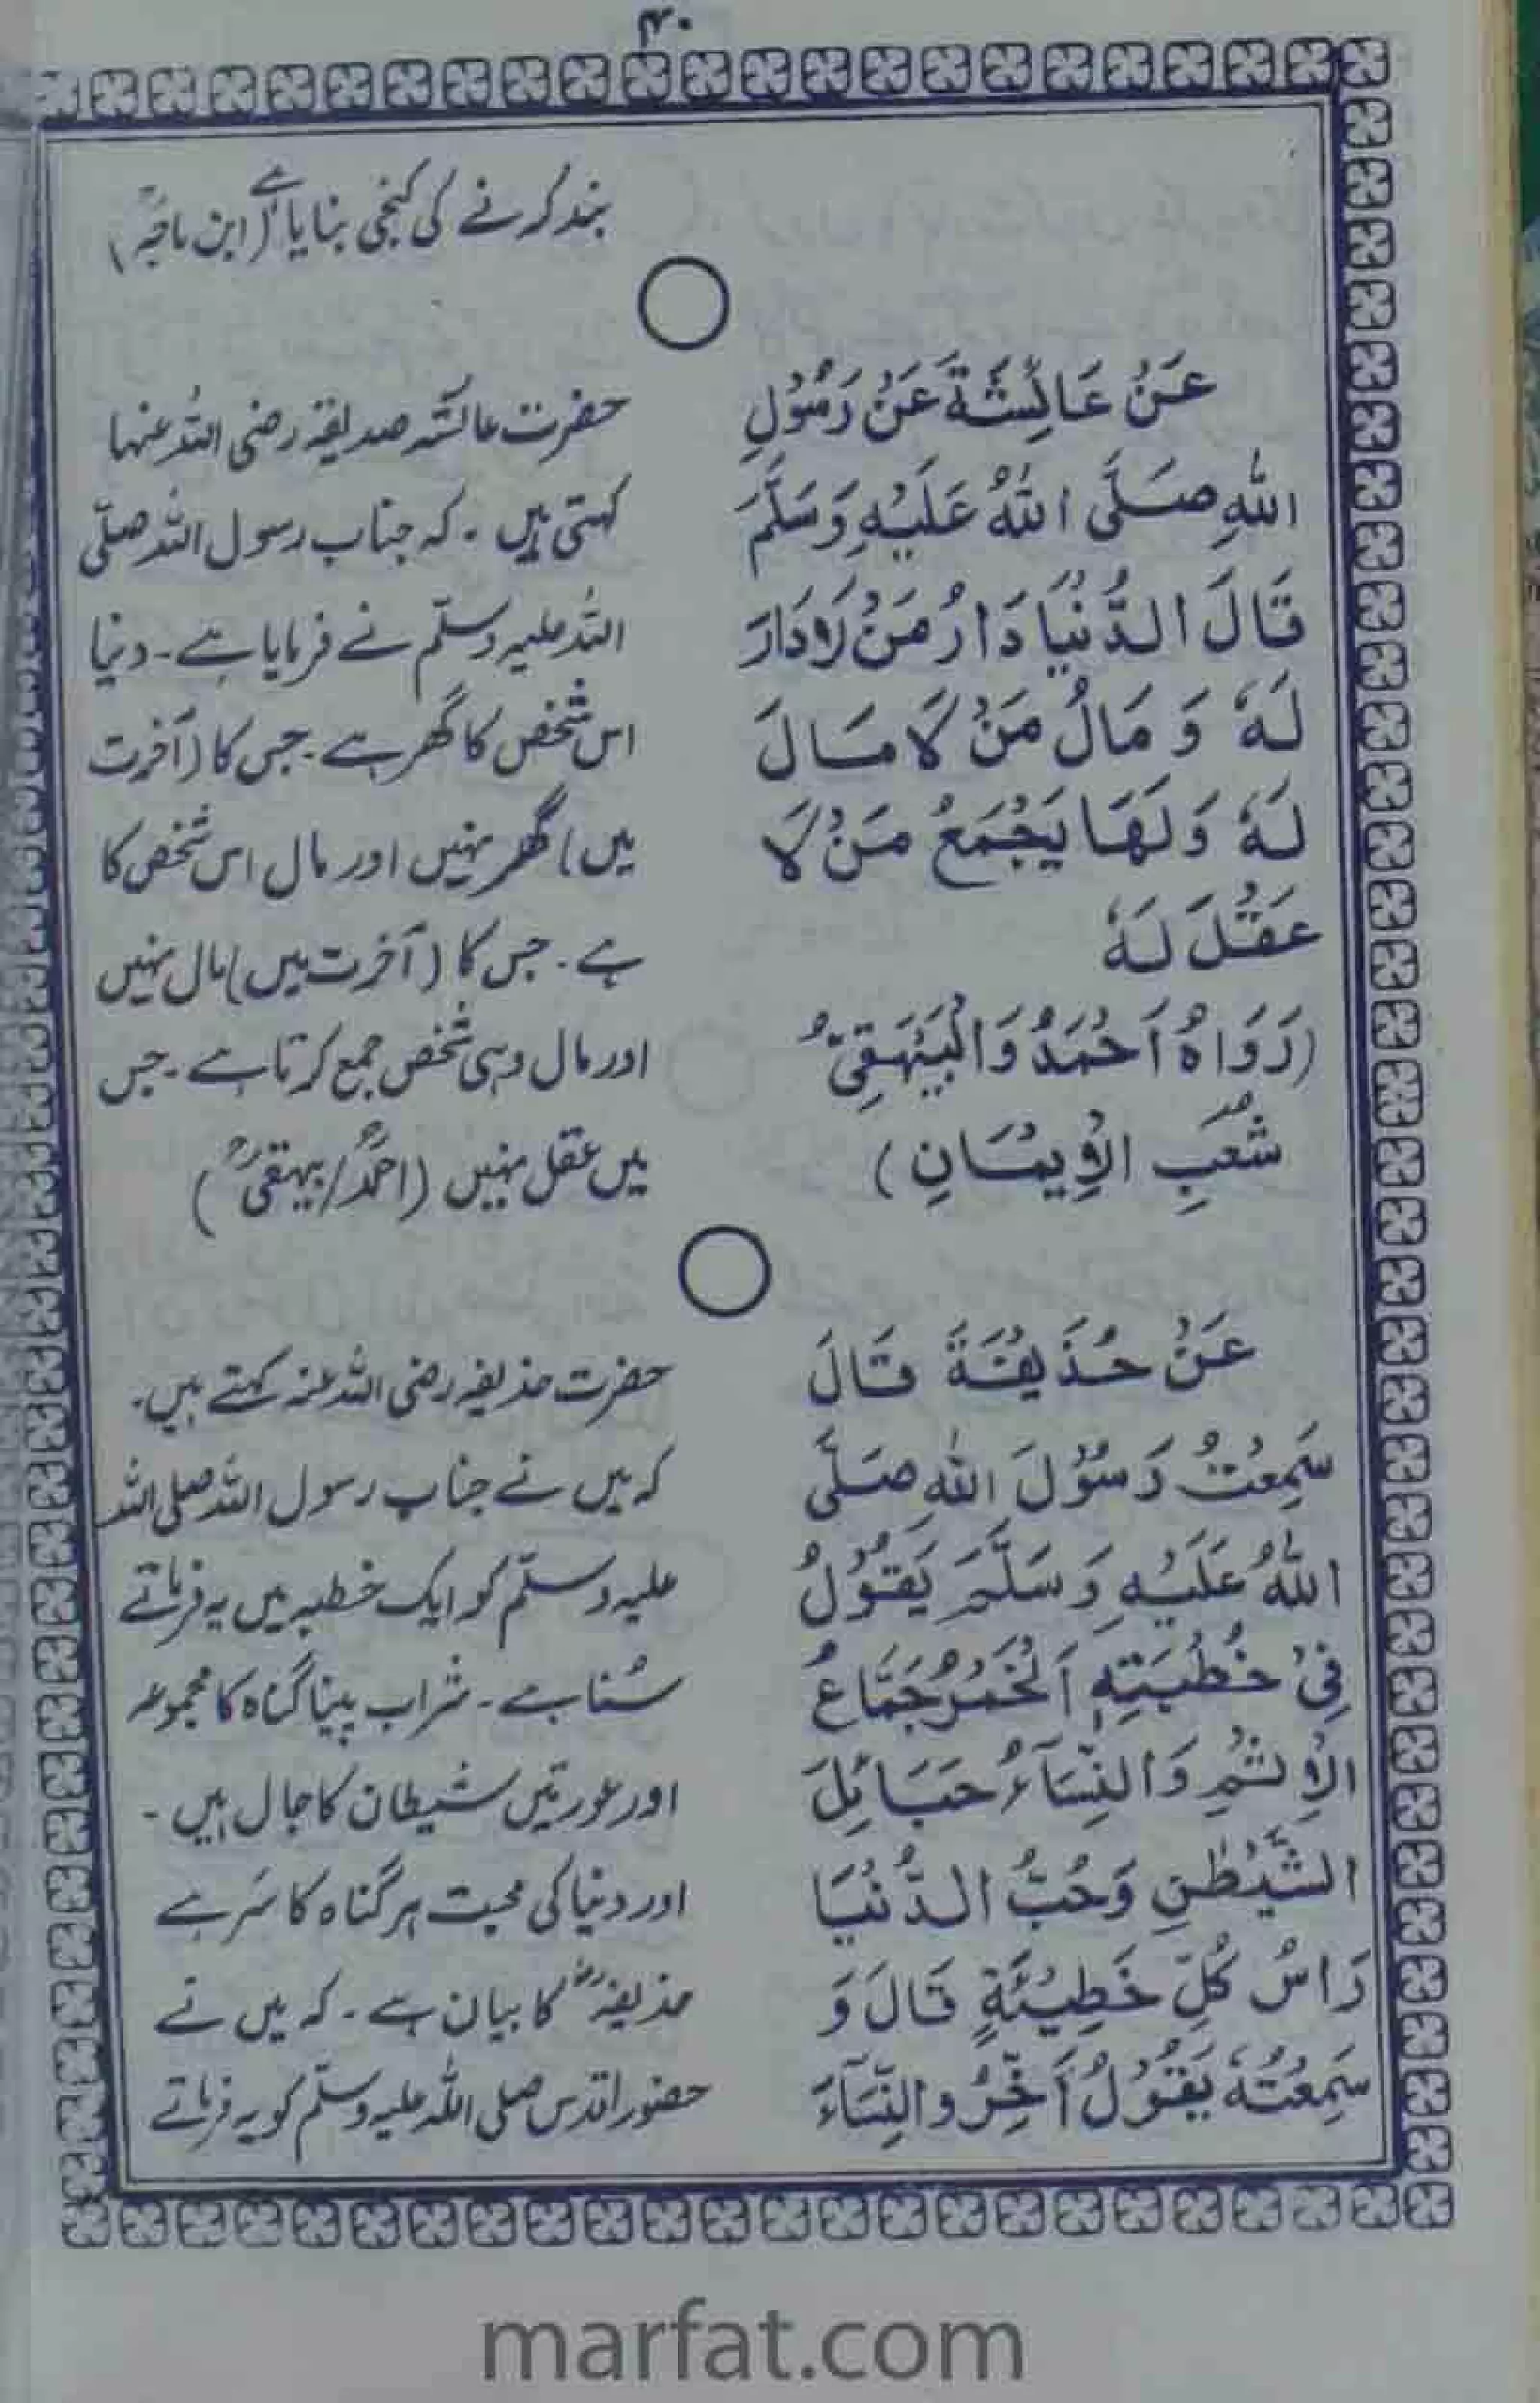 ۴۰
بند کرنے کی کنجی بنایا ہے (ابن ماجہؒ)
عَنْ عَائِشَةَ عَنْ رَسُوْلِ
اللهِ صَلَّى اللهُ عَلَيْهِ وَسَلَّمَ
قَالَ الدُّنْيَا دَارُ مَنْ لَا دَارَ
لَهٗ وَ مَالُ مَنْ لَا مَالَ
لَهٗ وَلَهَا يَجْمَعُ مَنْ لَا
عَقْلَ لَهٗ
(رَوَاهُ اَحْمَدُ وَالْبَيْهَقِيُّ
شُعَبِ الْاِيْمَانِ)
حضرت عائشہ صدیقہ رضی اللہ عنہا
کہتی ہیں ۔ کہ جناب رسول اللہ صلّی
اللہ علیہ وسلّم نے فرمایا ہے ۔ دنیا
اس شخص کا گھر ہے ۔ جس کا (آخرت
میں) گھر نہیں اور مال اس شخص کا
ہے ۔ جس کا (آخرت میں) مال نہیں
اور مال وہی شخص جمع کرتا ہے ۔ جس
میں عقل نہیں (احمدؒ/بیہقیؒ)
عَنْ حُذَيْفَةَ قَالَ
سَمِعْتُ رَسُوْلَ اللهِ صَلَّى
اللهُ عَلَيْهِ وَسَلَّمَ يَقُوْلُ
فِىْ خُطْبَتِهٖ اَلْخَمْرُ جَمَّاعُ
الْاِثْمِ وَالنِّسَآءُ حَبَائِلَ
الشَّيْطٰنِ وَحُبُّ الدُّنْيَا
رَاسُ كُلِّ خَطِيْئَةٍ قَالَ وَ
سَمِعْتُهٗ يَقُوْلُ اَخِّرُوا النِّسَآءَ
حضرت حذیفہ رضی اللہ عنہ کہتے ہیں ۔
کہ میں نے جناب رسول اللہ صلی اللہ
علیہ وسلّم کو ایک خطبہ میں یہ فرماتے
سُنا ہے ۔ شراب پینا گناہ کا مجموعہ
اور عورتیں شیطان کا جال ہیں ۔
اور دنیا کی محبت ہر گناہ کا سَر ہے
حذیفہؓ کا بیان ہے ۔ کہ میں نے
حضور اقدس صلی اللہ علیہ وسلّم کو یہ فرماتے
marfat.com